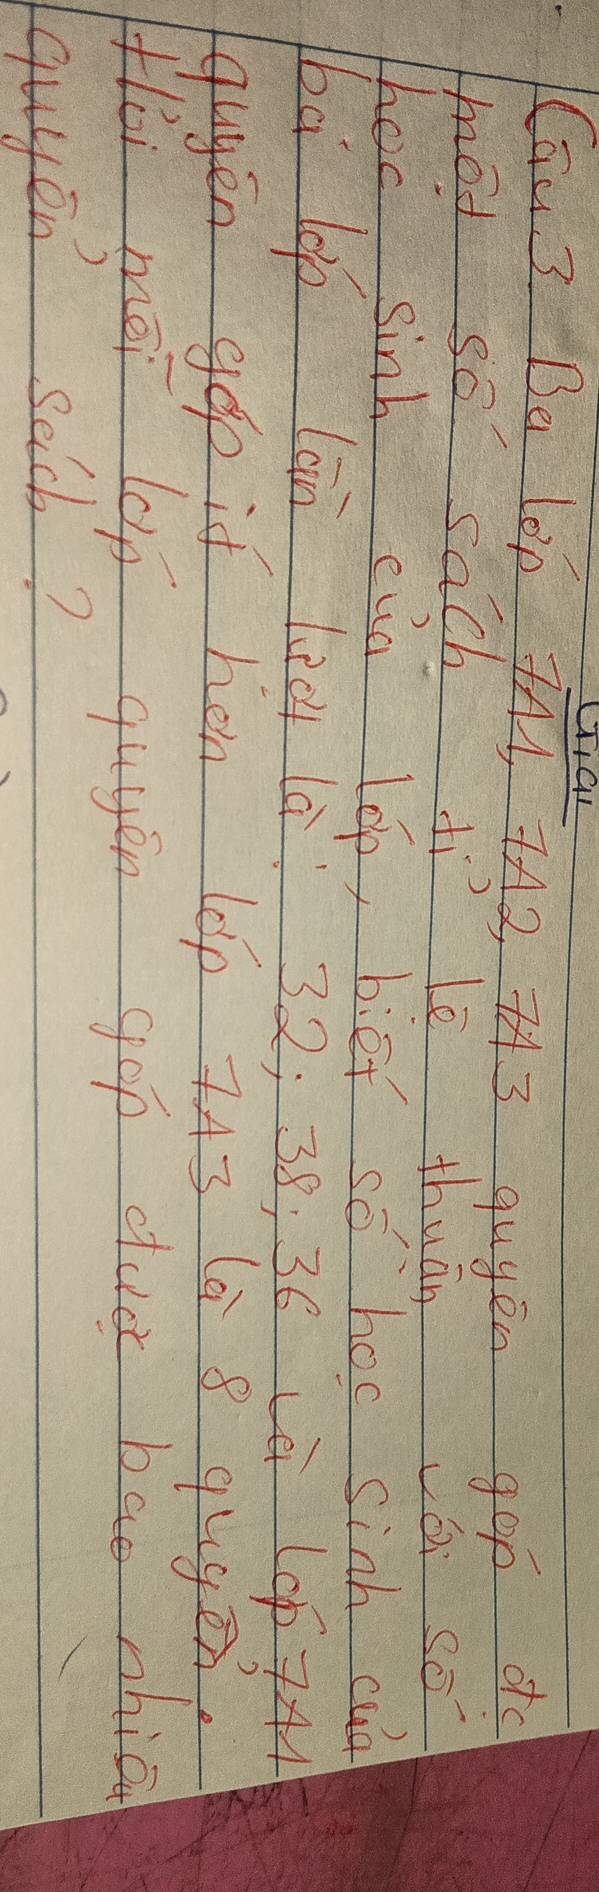 Giải
Câu 3 Ba lớp 7A1, 7A2, 7A3 quyên góp đc
một số sách tỉ lệ thuận với số
học sinh của lớp, biết số học sinh của
ba lớp lần lượt là: 32; 38; 36 và lớp 7A1
quyên góp ít hơn lớp 7A3 là 8 quyển.
Hỏi mỗi lớp quyên góp được bao nhiêu
quyển sách?